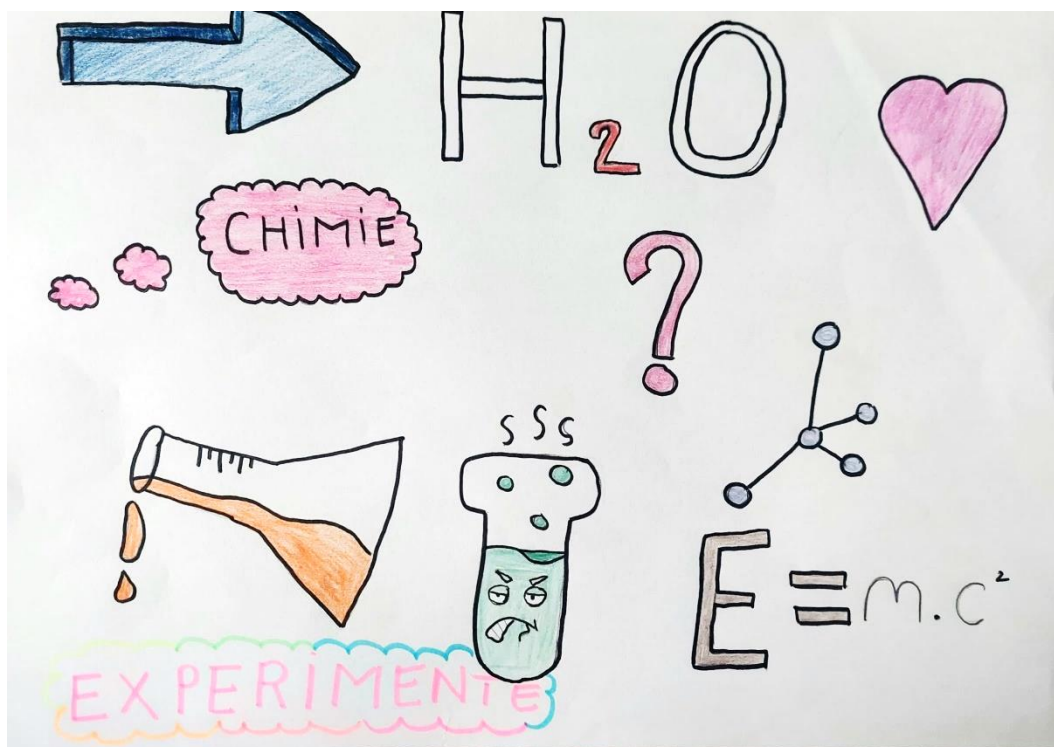 H₂O
CHiMiE
?
E=m.c²
EXPERiMENTE